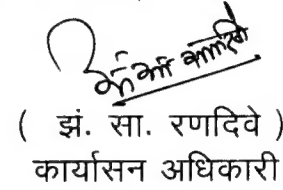 ( झं. सा. रणदिवे )
कार्यासन अधिकारी